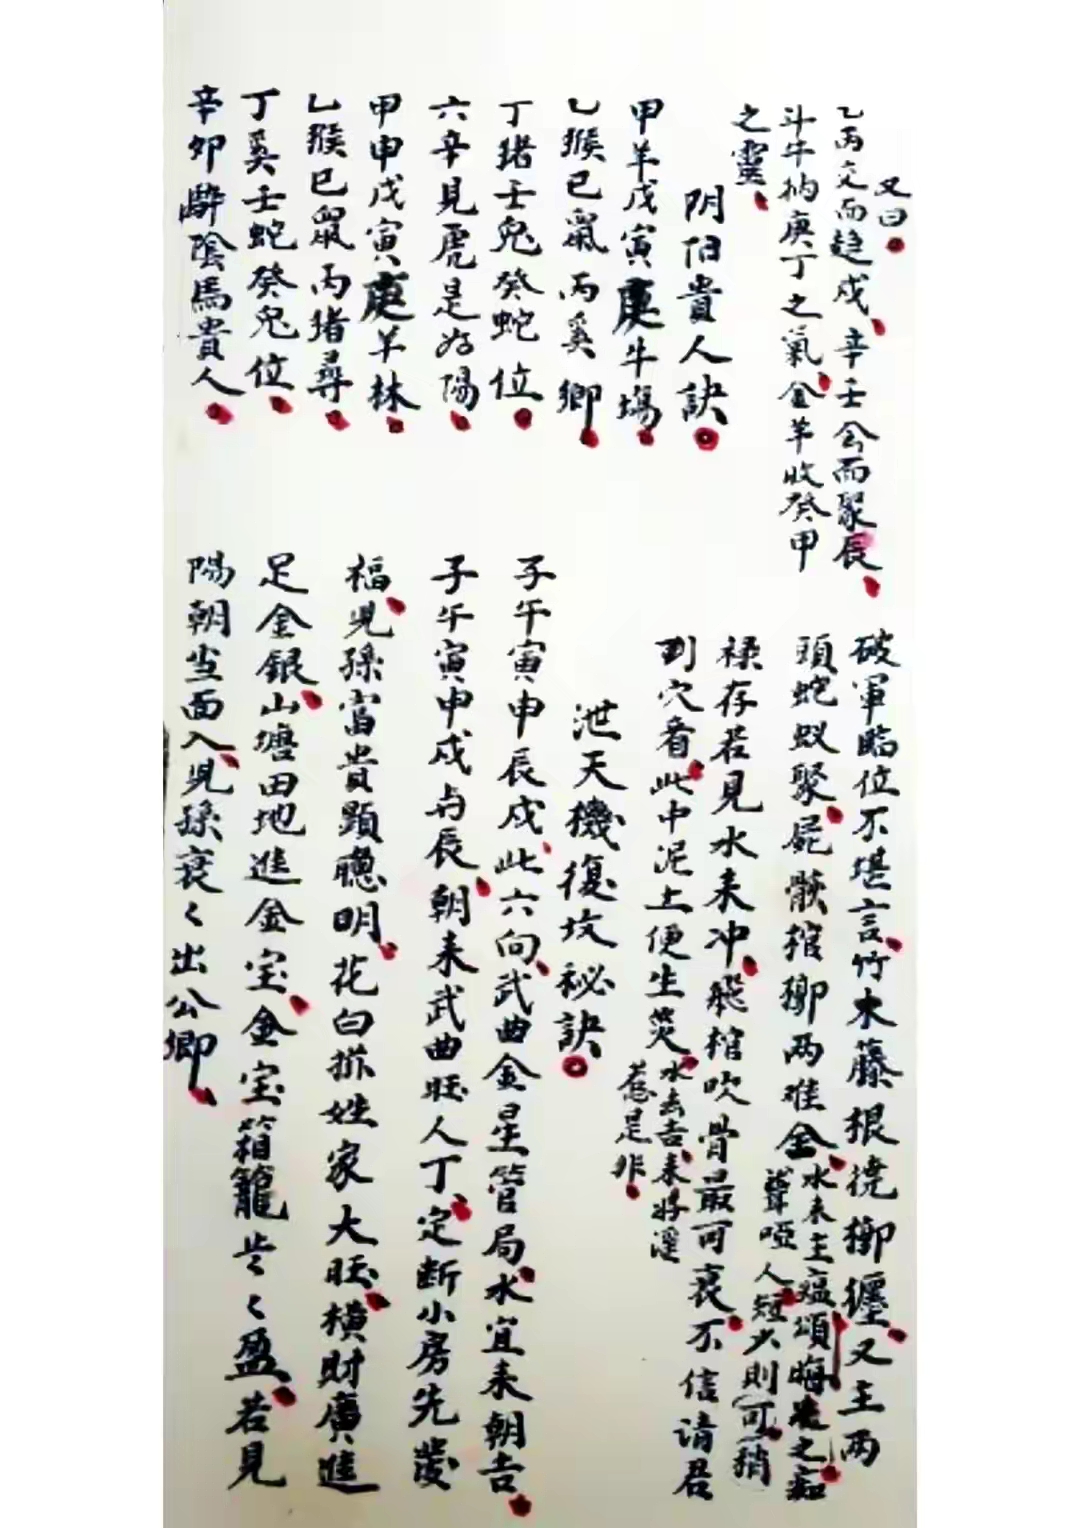 又曰
乙丙交而趋戍辛壬会而聚辰
斗牛纳庚丁之氣金羊收癸甲
之靈
阴阳貴人訣
甲羊戊寅庚牛塲
乙猴己鼠丙奚鄉
丁猪壬兔癸蛇位
六辛見虎是为陽
甲申戊寅庚羊林
乙猴己鼠丙猪尋
丁奚壬蛇癸兔位
辛卯辭陰馬貴人
破軍臨位不堪言竹木藤根撓槨纏又主两
頭蛇蚁聚屍骸棺槨两难全水来主
聾啞人短少則可稍
禄存若見水来冲飛棺吹骨最可哀不信请君
到穴看此中泥土便生災水去吉来将淫
惹是非
泄天機復坟秘訣
子午寅申辰戍此六向武曲金星管局水宜来朝吉
子午寅申戍与辰朝来武曲旺人丁定断小房先發
福児孫富貴顕聰明花白拆姓家大旺横財廣進
足金銀山塘田地進金宝金宝箱籠步々盈若見
陽朝当面入児孫衰々出公卿